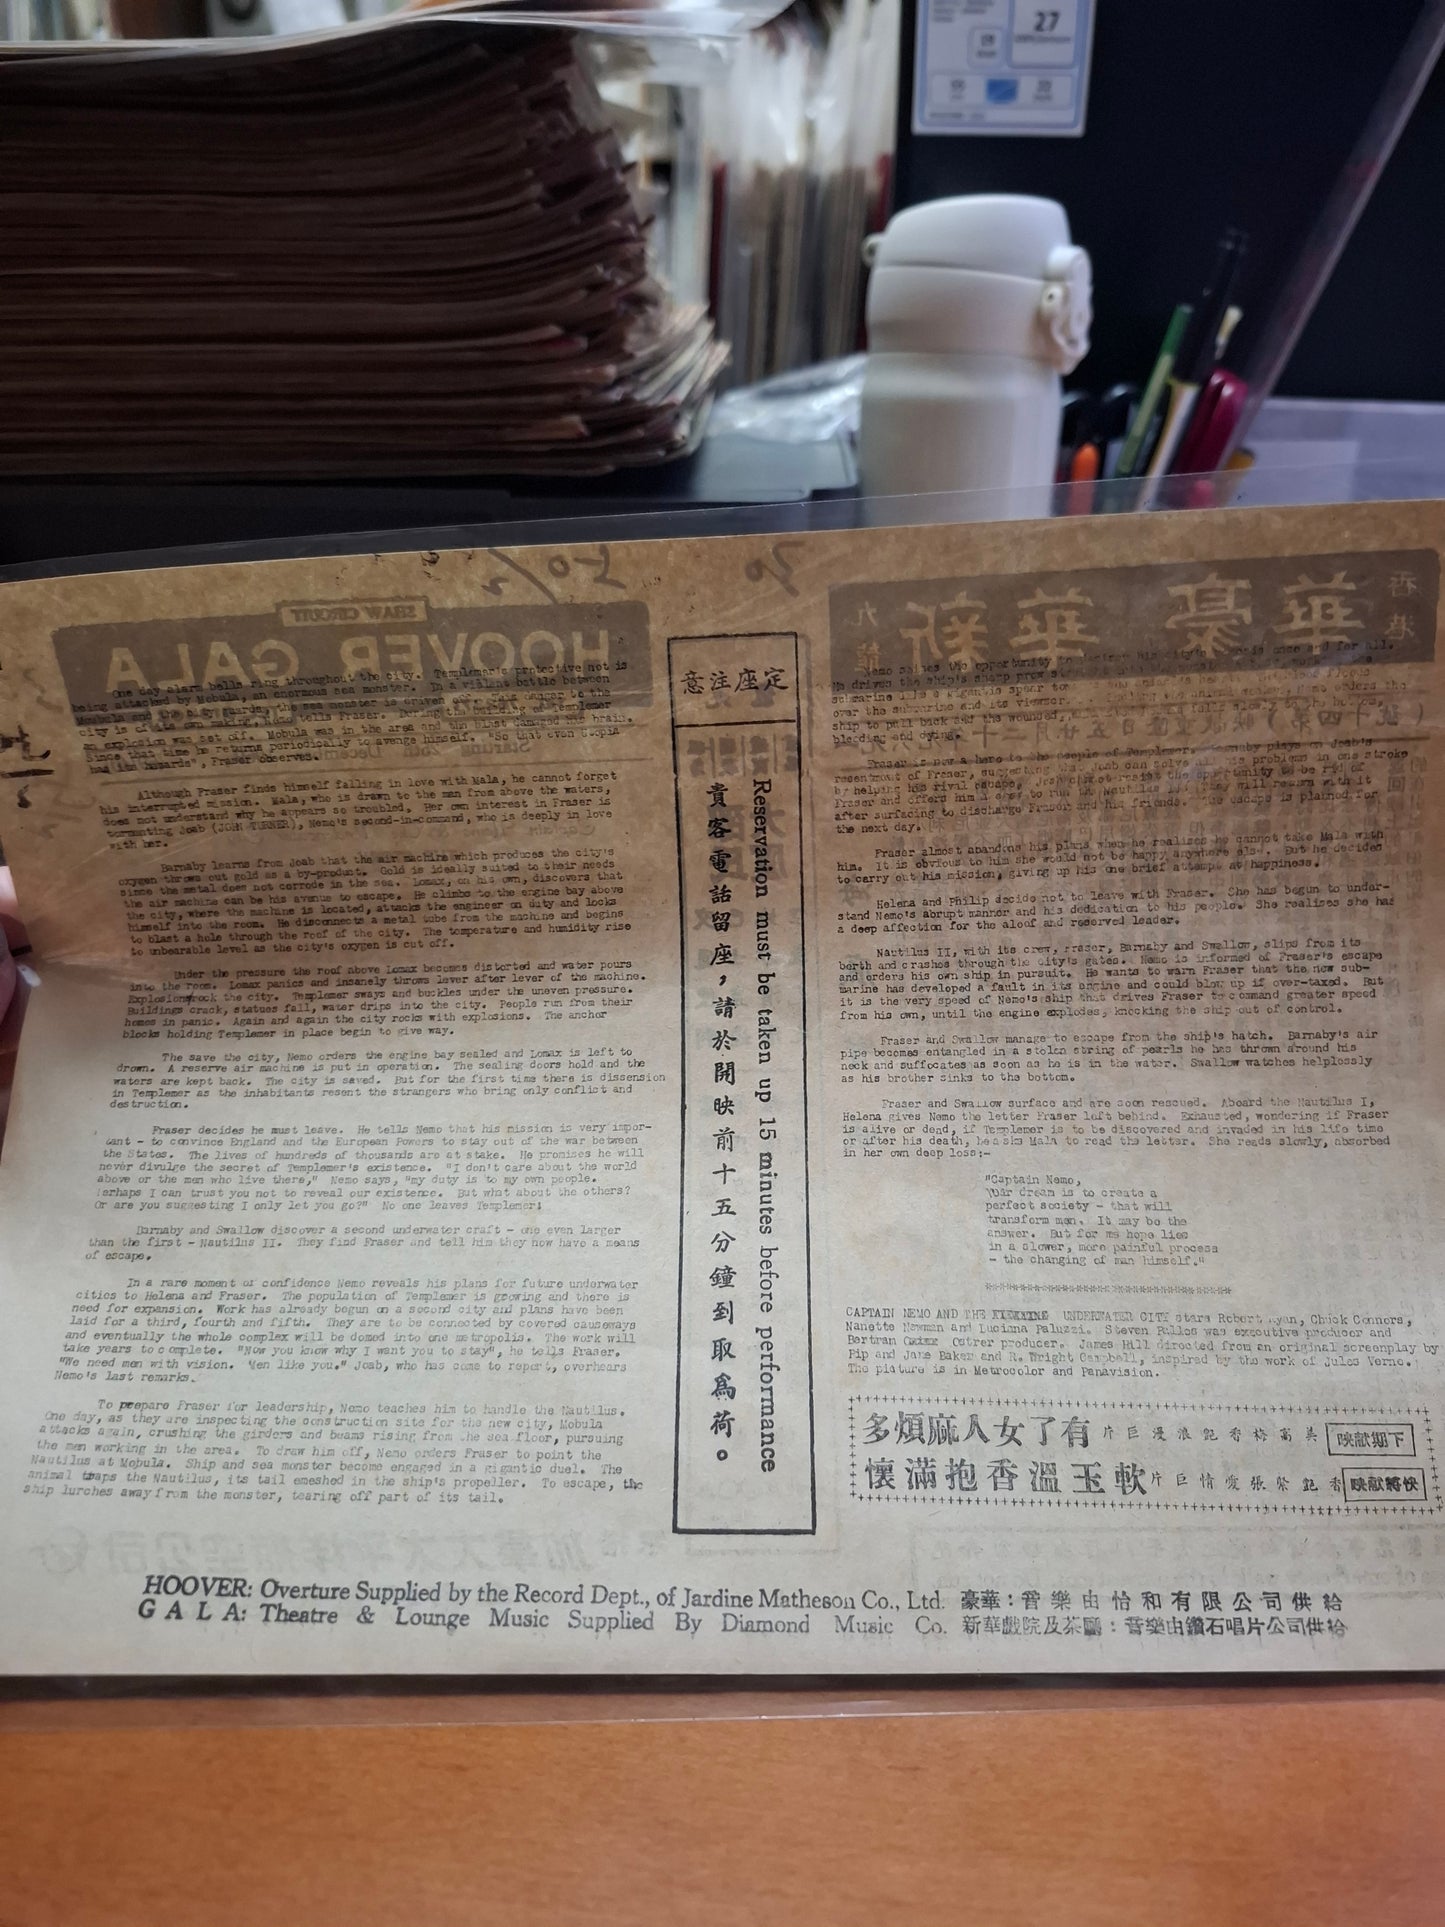 27
SHAW CIRCUIT
HOOVER GALA
One day alarm bells ring throughout the city. Templemer's protective net is
being attacked by Mobula, an enormous sea monster. In a violent battle between
Mobula and the city guards, the sea monster is driven off. This danger to the
city is of its own making, Nemo tells Fraser. During the building of Templemer
an explosion was set off. Mobula was in the area and the blast damaged his brain.
Since that time he returns periodically to avenge himself. "So that even Utopia
has its hazards", Fraser observes.
Although Fraser finds himself falling in love with Mala, he cannot forget
his interrupted mission. Mala, who is drawn to the man from above the waters,
does not understand why he appears so troubled. Her own interest in Fraser is
tormenting Joab (JOHN TURNER), Nemo's second-in-command, who is deeply in love
with her.
Barnaby learns from Joab that the air machine which produces the city's
oxygen throws out gold as a by-product. Gold is ideally suited to their needs
since the metal does not corrode in the sea. Lomax, on his own, discovers that
the air machine can be his avenue to escape. He climbs to the engine bay above
the city, where the machine is located, attacks the engineer on duty and locks
himself into the room. He disconnects a metal tube from the machine and begins
to blast a hole through the roof of the city. The temperature and humidity rise
to unbearable level as the city's oxygen is cut off.
Under the pressure the roof above Lomax becomes distorted and water pours
into the room. Lomax panics and insanely throws lever after lever of the machine.
Explosions rock the city. Templemer sways and buckles under the uneven pressure.
Buildings crack, statues fall, water drips into the city. People run from their
homes in panic. Again and again the city rocks with explosions. The anchor
blocks holding Templemer in place begin to give way.
The save the city, Nemo orders the engine bay sealed and Lomax is left to
drown. A reserve air machine is put in operation. The sealing doors hold and the
waters are kept back. The city is saved. But for the first time there is dissension
in Templemer as the inhabitants resent the strangers who bring only conflict and
destruction.
Fraser decides he must leave. He tells Nemo that his mission is very impor-
tant - to convince England and the European Powers to stay out of the war between
the States. The lives of hundreds of thousands are at stake. He promises he will
never divulge the secret of Templemer's existence. "I don't care about the world
above or the men who live there," Nemo says, "my duty is to my own people.
Perhaps I can trust you not to reveal our existence. But what about the others?
Or are you suggesting I only let you go?" No one leaves Templemer!
Barnaby and Swallow discover a second underwater craft - one even larger
than the first - Nautilus II. They find Fraser and tell him they now have a means
of escape.
In a rare moment of confidence Nemo reveals his plans for future underwater
cities to Helena and Fraser. The population of Templemer is growing and there is
need for expansion. Work has already begun on a second city and plans have been
laid for a third, fourth and fifth. They are to be connected by covered causeways
and eventually the whole complex will be domed into one metropolis. The work will
take years to complete. "Now you know why I want you to stay", he tells Fraser.
"We need men with vision. Men like you." Joab, who has come to report, overhears
Nemo's last remarks.
To prepare Fraser for leadership, Nemo teaches him to handle the Nautilus.
One day, as they are inspecting the construction site for the new city, Mobula
attacks again, crushing the girders and beams rising from the sea floor, pursuing
the men working in the area. To draw him off, Nemo orders Fraser to point the
Nautilus at Mobula. Ship and sea monster become engaged in a gigantic duel. The
animal traps the Nautilus, its tail emeshed in the ship's propeller. To escape, the
ship lurches away from the monster, tearing off part of its tail.
定座注意
Reservation must be taken up 15 minutes before performance
貴客電話留座，請於開映前十五分鐘到取爲荷。
香港 豪華 新華 九龍
Nemo seizes the opportunity to destroy his city's nemesis once and for all.
He drives the ship's sharp prow
submarine like a gigantic spear
over the submarine and its viewer Nemo orders the
ship to pull back and the wounded falls slowly to the bottom,
bleeding and dying.
Fraser is now a hero to the people of Templemer. Barnaby plays on Joab's
resentment of Fraser, suggesting that Joab can solve all his problems in one stroke
by helping his rival escape. Joab cannot resist the opportunity to be rid of
Fraser and offers him a crew to run the Nautilus II. They will return with it
after surfacing to discharge Fraser and his friends. The escape is planned for
the next day.
Fraser almost abandons his plans when he realises he cannot take Mala with
him. It is obvious to him she would not be happy anywhere else. But he decides
to carry out his mission, giving up his one brief attempt at happiness.
Helena and Philip decide not to leave with Fraser. She has begun to under-
stand Nemo's abrupt manner and his dedication to his people. She realises she has
a deep affection for the aloof and reserved leader.
Nautilus II, with its crew, Fraser, Barnaby and Swallow, slips from its
berth and crashes through the city's gates. Nemo is informed of Fraser's escape
and orders his own ship in pursuit. He wants to warn Fraser that the new sub-
marine has developed a fault in its engine and could blow up if over-taxed. But
it is the very speed of Nemo's ship that drives Fraser to command greater speed
from his own, until the engine explodes, knocking the ship out of control.
Fraser and Swallow manage to escape from the ship's hatch. Barnaby's air
pipe becomes entangled in a stolen string of pearls he has thrown around his
neck and suffocates as soon as he is in the water. Swallow watches helplessly
as his brother sinks to the bottom.
Fraser and Swallow surface and are soon rescued. Aboard the Nautilus I,
Helena gives Nemo the letter Fraser left behind. Exhausted, wondering if Fraser
is alive or dead, if Templemer is to be discovered and invaded in his life time
or after his death, he asks Mala to read the letter. She reads slowly, absorbed
in her own deep loss:-
"Captain Nemo,
Your dream is to create a
perfect society - that will
transform men. It may be the
answer. But for me hope lies
in a slower, more painful process
- the changing of man himself."
******************************
CAPTAIN NEMO AND THE UNDERWATER CITY stars Robert Ryan, Chuck Connors,
Nanette Newman and Luciana Paluzzi. Steven Pallos was executive producer and
Bertram Ostrer producer. James Hill directed from an original screenplay by
Pip and Jane Baker and R. Wright Campbell, inspired by the work of Jules Verne.
The picture is in Metrocolor and Panavision.
下期献映 美高梅香艶浪漫巨片 有了女人麻煩多
快將献映 香艶緊張愛情巨片 軟玉溫香抱滿懷
HOOVER: Overture Supplied by the Record Dept., of Jardine Matheson Co., Ltd. 豪華：音樂由怡和有限公司供給
GALA: Theatre & Lounge Music Supplied By Diamond Music Co. 新華戲院及茶廳：音樂由鑽石唱片公司供給